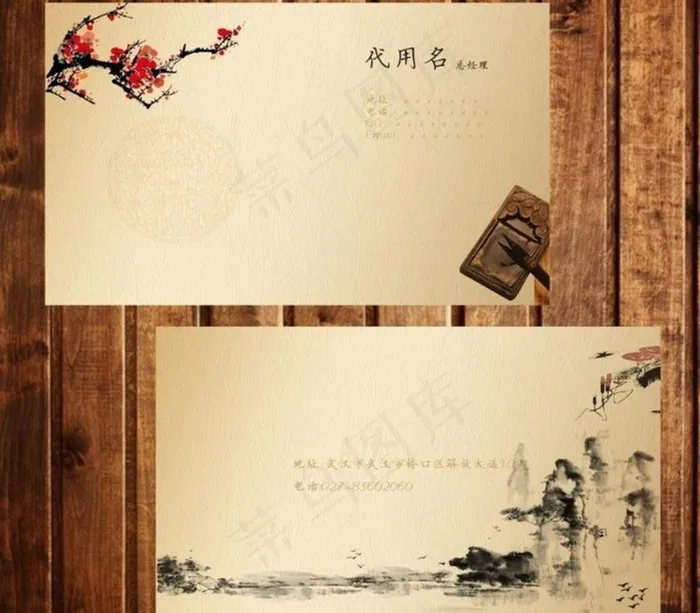 代用名 总经理
地址
电话
QQ
Email
菜鸟图库
地址:武汉市武汉市桥口区解放大道10号
电话:027-83602060
菜鸟图库